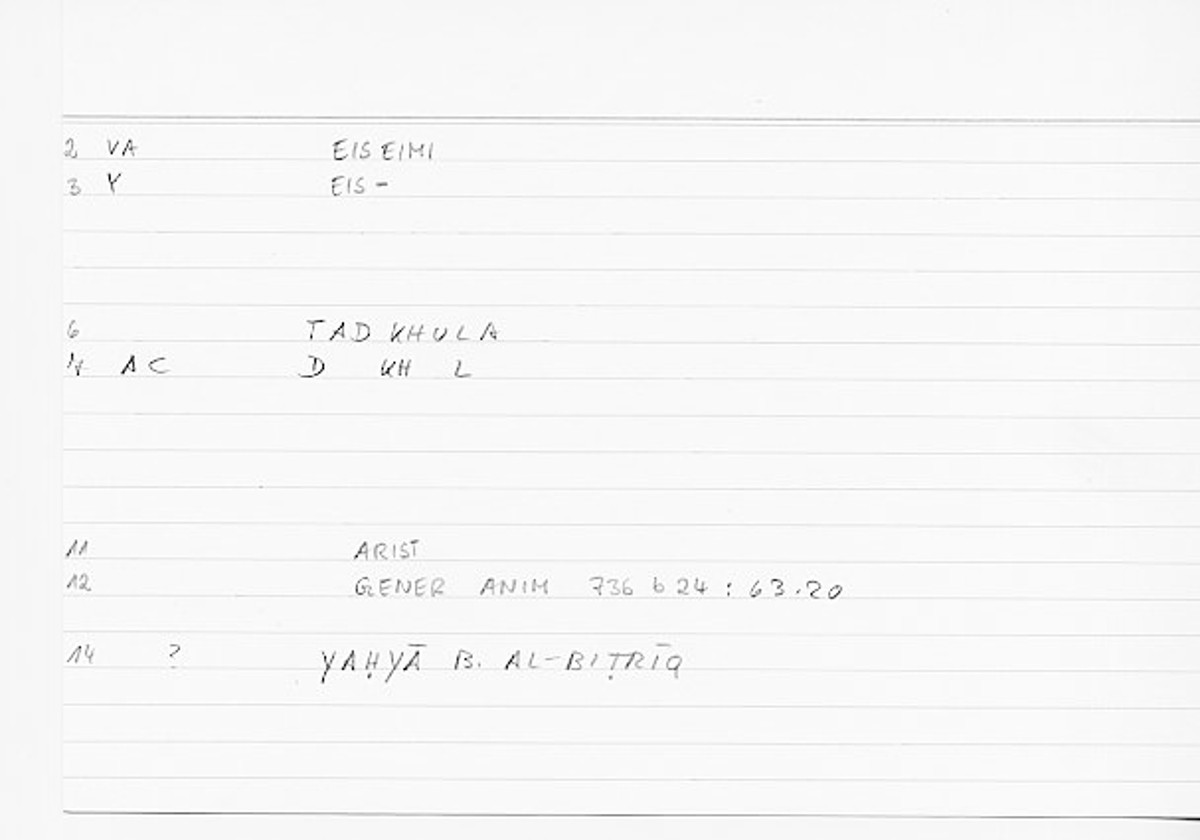 2 VA EISEIMI
3 Y EIS-
6 TADKHULA
AC D KH L
11 ARIST
12 GENER ANIM 736 b 24 : 63.20
14 ? YAḤYĀ B. AL-BIṬRĪQ